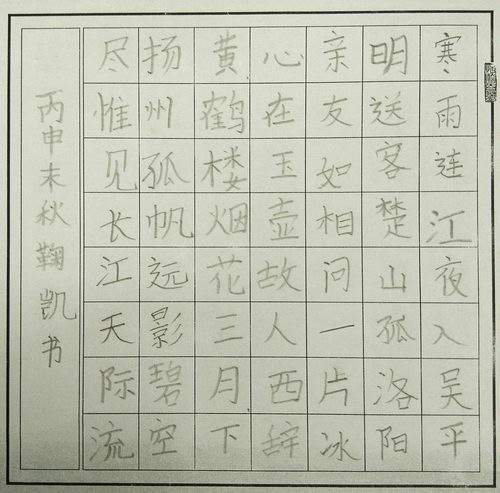 寒雨连江夜入吴平
明送客楚山孤洛阳
亲友如相问一片冰
心在玉壶故人西辞
黄鹤楼烟花三月下
扬州孤帆远影碧空
尽惟见长江天际流
丙申末秋鞠凯书